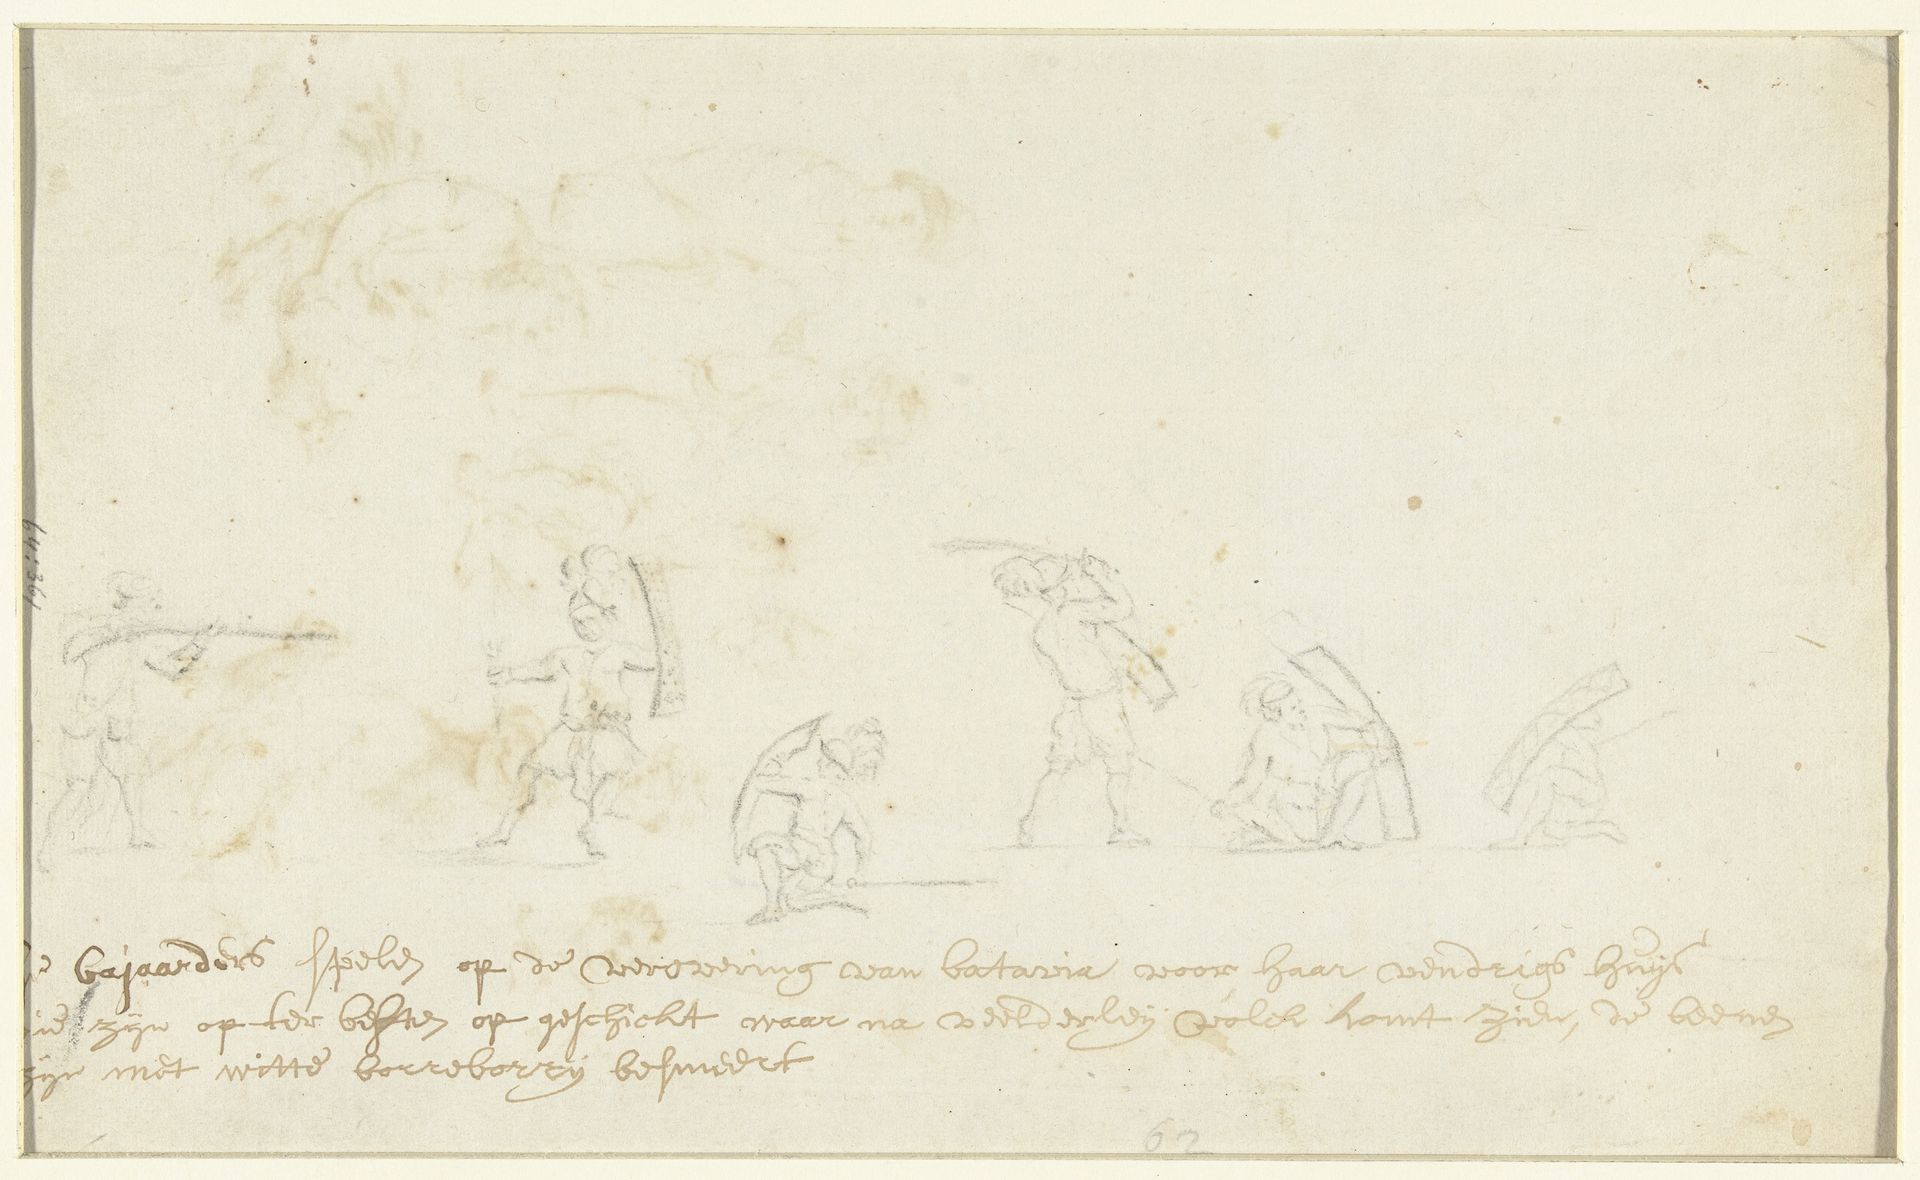 bajaarders spelen op de verovering van batavia voor haar vendrigs huijs
zijn op ter besten op geschickt waar na veelderleij volck komt zien, de beenen
zijn met witte borreborrij besmeert
62